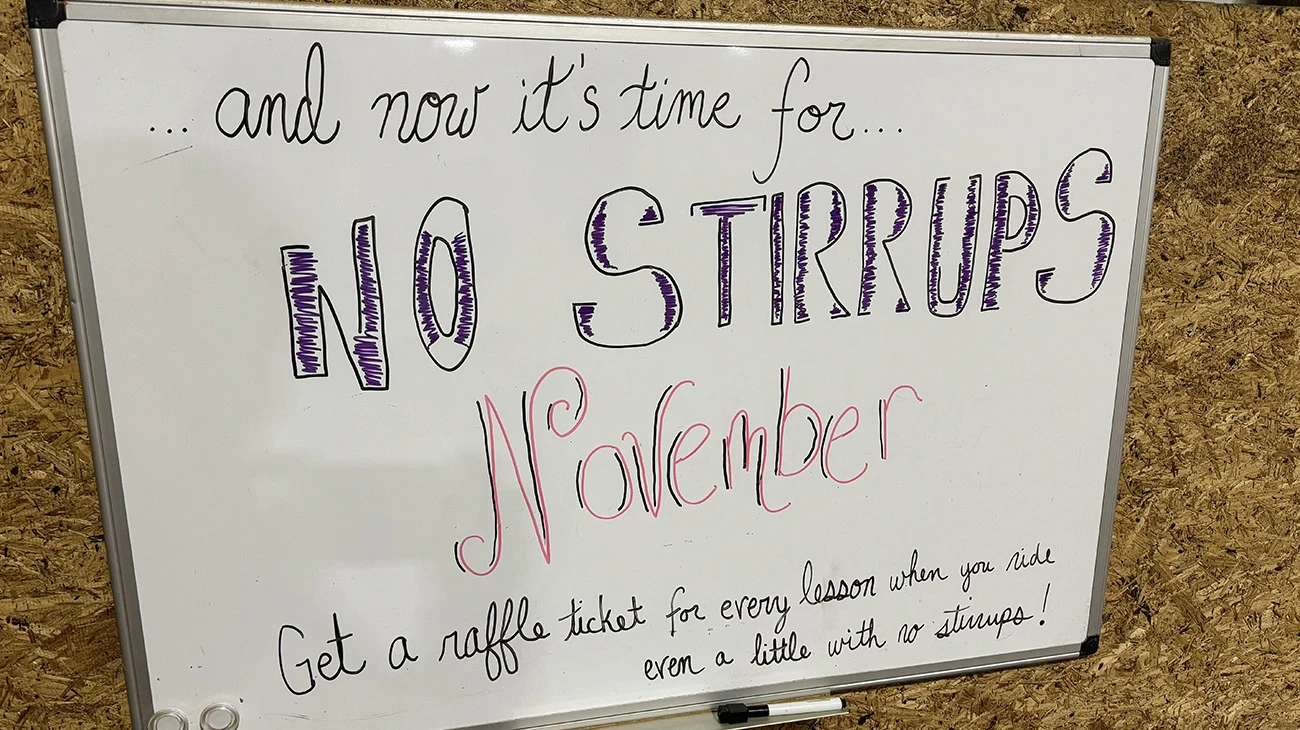 ... and now it's time for...
NO STIRRUPS
November
Get a raffle ticket for every lesson when you ride
even a little with no stirrups!